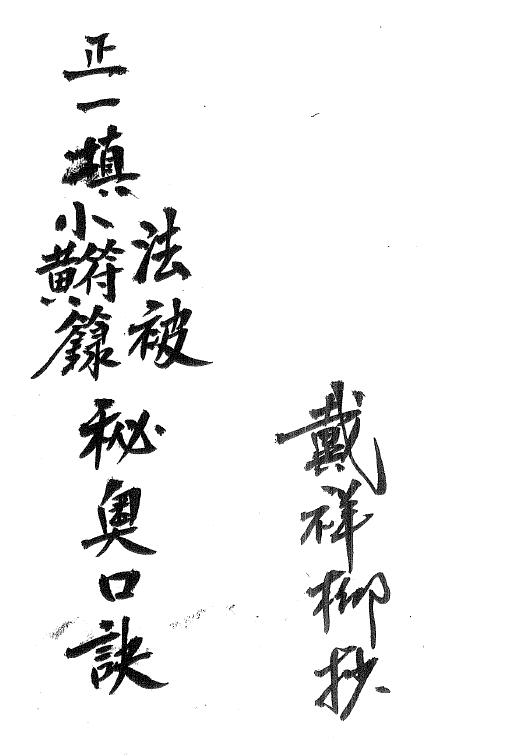 戴祥柳抄
正一填
法被
小黃符籙
秘奥口訣